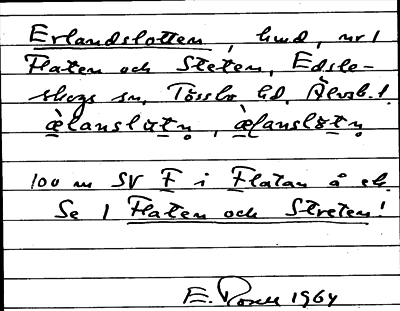 Erlandslotten, hmd, nr 1
Flaten och Steten, Edsle-
skogs sn, Tössbo hd, Älvsb. l.
æ̀lanslɷtn̥, æ̀lanslɷtn̥
100 m SV F i Flatan å ek.
Se 1 Flaten och Streten!
E. 1964